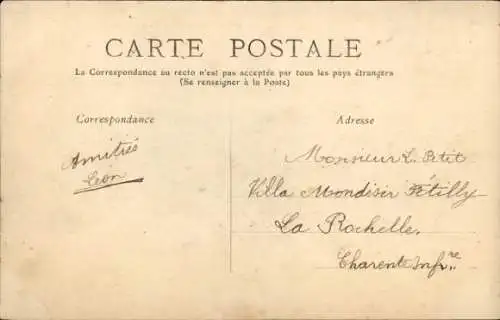 CARTE POSTALE
La Correspondance au recto n'est pas acceptée par tous les pays étrangers
(Se renseigner à la Poste)
Correspondance
Adresse
Amitiés
Léon
Monsieur L. Petit
Villa Mondésir Fétilly
La Rochelle.
Charente Infre